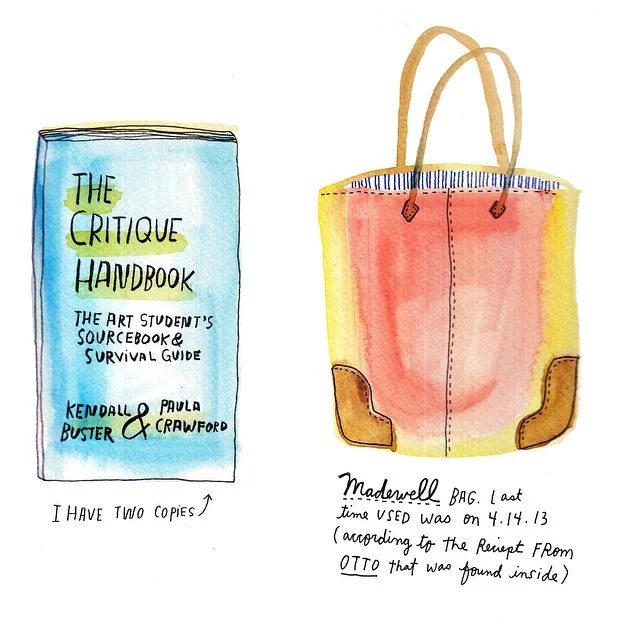 THE
CRITIQUE
HANDBOOK
THE ART STUDENT'S
SOURCEBOOK &
SURVIVAL GUIDE
KENDALL BUSTER & PAULA CRAWFORD
I HAVE TWO COPIES
Madewell BAG. Last
time USED was on 4.14.13
(according to the Reciept FROM
OTTO that was found inside)